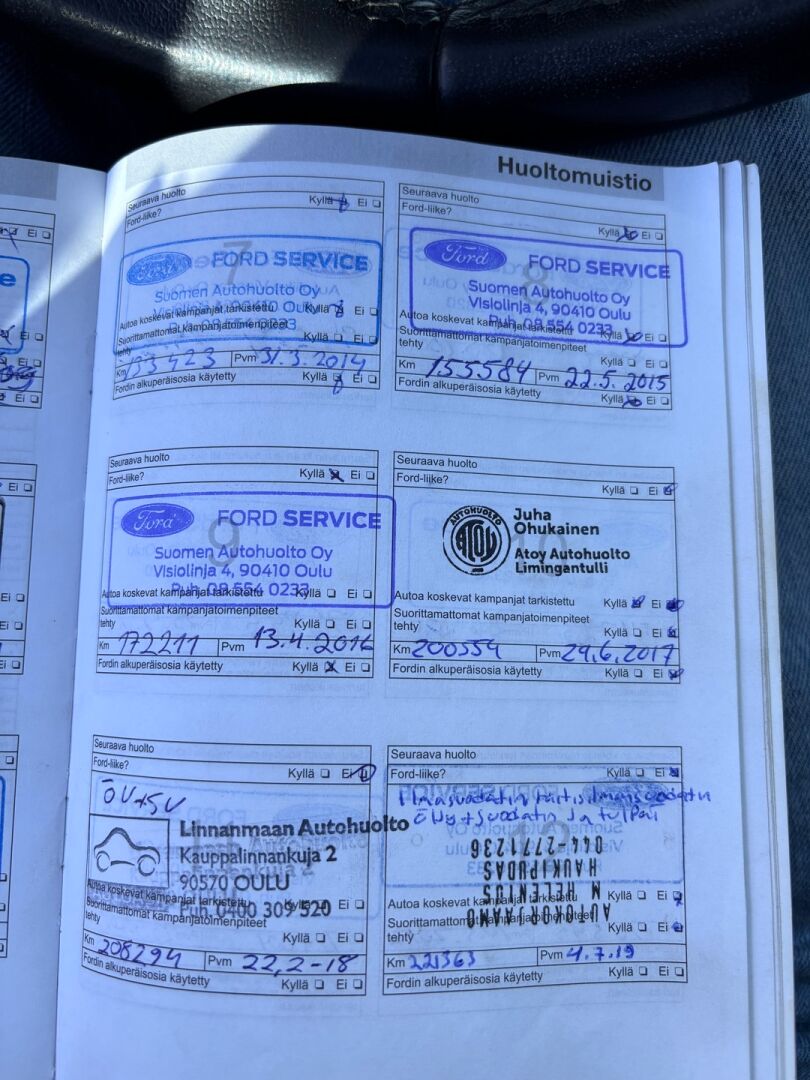 Huoltomuistio
Seuraava huolto
Ford-liike?
Kyllä Ei
7
Ford
FORD SERVICE
Suomen Autohuolto Oy
Visiolinja 4, 90410 Oulu
Autoa koskevat kampanjat tarkistettu Kyllä Ei
Suorittamattomat kampanjatoimenpiteet
tehty Kyllä Ei
Km 133423 Pvm 31.3.2014
Fordin alkuperäisosia käytetty Kyllä Ei
Seuraava huolto
Ford-liike?
Kyllä Ei
8
Ford
FORD SERVICE
Suomen Autohuolto Oy
Visiolinja 4, 90410 Oulu
Puh 08 554 0233
Autoa koskevat kampanjat tarkistettu Kyllä Ei
Suorittamattomat kampanjatoimenpiteet
tehty Kyllä Ei
Km 155584 Pvm 22.5.2015
Fordin alkuperäisosia käytetty Kyllä Ei
Seuraava huolto
Ford-liike? Kyllä Ei
9
Ford
FORD SERVICE
Suomen Autohuolto Oy
Visiolinja 4, 90410 Oulu
Puh 08 554 0233
Autoa koskevat kampanjat tarkistettu Kyllä Ei
Suorittamattomat kampanjatoimenpiteet
tehty Kyllä Ei
Km 172211 Pvm 13.4.2016
Fordin alkuperäisosia käytetty Kyllä Ei
Seuraava huolto
Ford-liike?
Kyllä Ei
AUTOHUOLTO
ATOY
Juha
Ohukainen
Atoy Autohuolto
Limingantulli
Autoa koskevat kampanjat tarkistettu Kyllä Ei
Suorittamattomat kampanjatoimenpiteet
tehty Kyllä Ei
Km 200554 Pvm 29.6.2017
Fordin alkuperäisosia käytetty Kyllä Ei
Seuraava huolto
Ford-liike?
Kyllä Ei
ÖV+SV
Linnanmaan Autohuolto
Kauppalinnankuja 2
90570 OULU
Puh. 0400 309 520
Autoa koskevat kampanjat tarkistettu Kyllä Ei
Suorittamattomat kampanjatoimenpiteet
tehty Kyllä Ei
Km 208294 Pvm 22,2-18
Fordin alkuperäisosia käytetty Kyllä Ei
Seuraava huolto
Ford-liike? Kyllä Ei
Ilmasuodatin raitisilmasuodatin
Öljy+suodatin ja tulpat
AUTOKORJAAMO
M HELENIUS
HAUKIPUDAS
044-2771236
Autoa koskevat kampanjat tarkistettu Kyllä Ei
Suorittamattomat kampanjatoimenpiteet
tehty Kyllä Ei
Km 221363 Pvm 4.7.19
Fordin alkuperäisosia käytetty Kyllä Ei